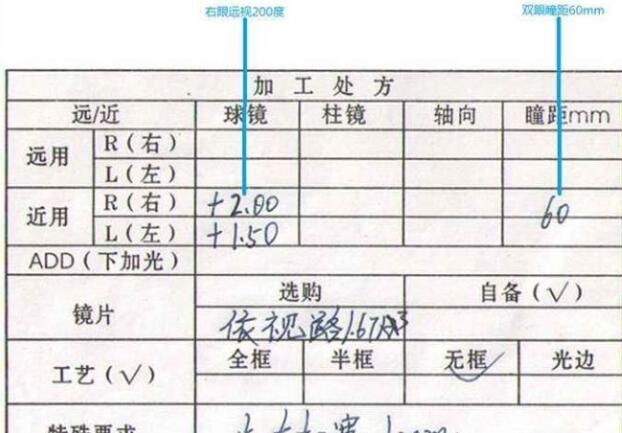 右眼远视200度 双眼瞳距60mm
加工处方
远/近 球镜 柱镜 轴向 瞳距mm
远用 R(右)
L(左)
近用 R(右) +2.00 60
L(左) +1.50
ADD(下加光)
镜片 选购 自备(√)
依视路1.67
工艺(√) 全框 半框 无框 光边
特殊要求